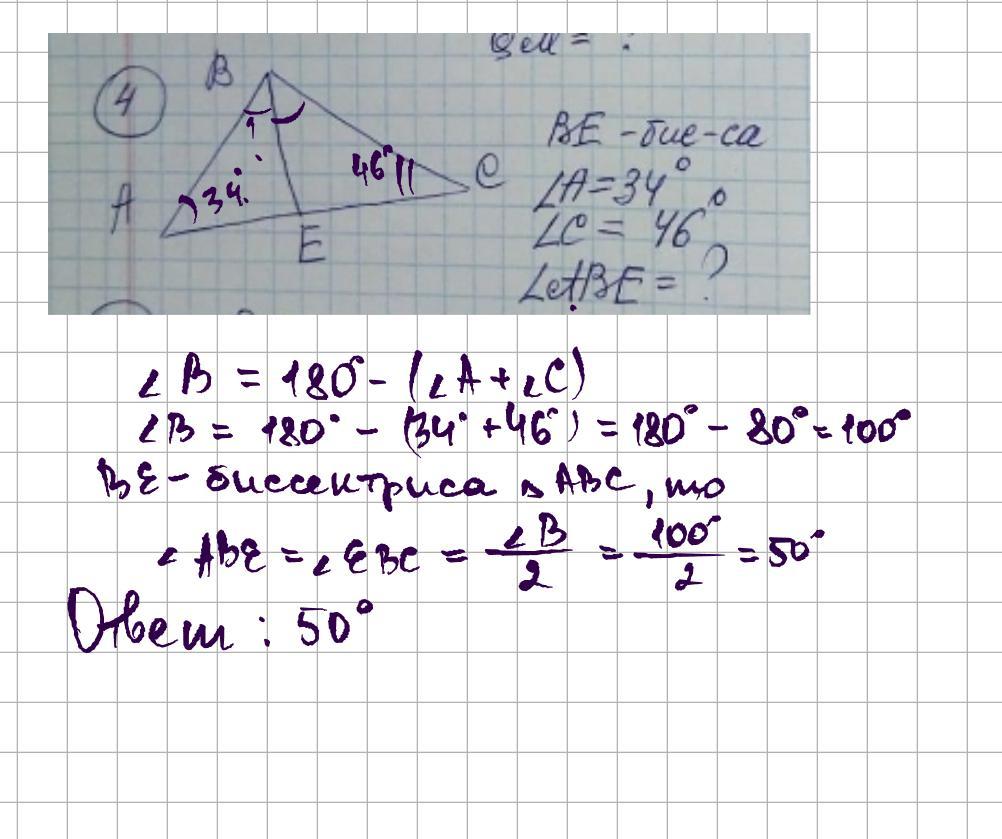 4
B
A
E
C
1
34°
46°
BE - бис-са
∠A = 34°
∠C = 46°
∠ABE = ?
∠B = 180° - (∠A + ∠C)
∠B = 180° - (34° + 46°) = 180° - 80° = 100°
BE - биссектриса △ABC, то
∠ABE = ∠EBC = ∠B/2 = 100°/2 = 50°
Ответ : 50°